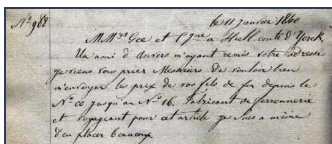 No 988. le 11 Janvier 1860
M. Mrs Gee et Cgnie a Hull comté d'York
Un ami d'Anvers m'ayant remis votre adresse
je viens vous prier Messieurs de vouloir bien
m'envoyer les prix de vos fils de fer depuis le
No 00 jusqu'au No 16. Fabricant de ferronnerie
et voyageant pour cet article je suis a même
d'en placer beaucoup